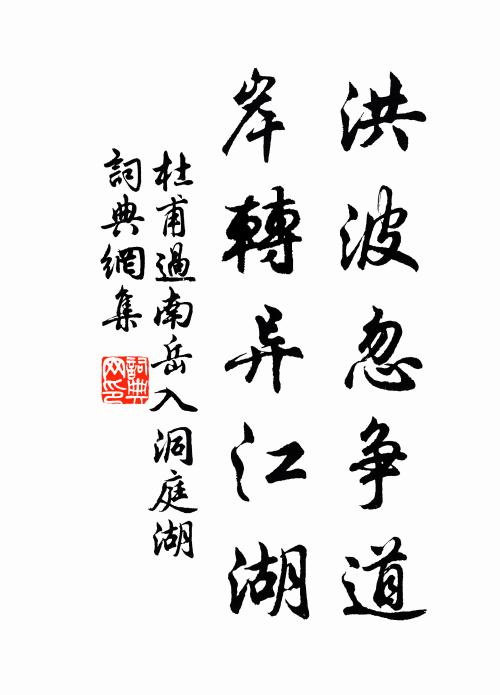 洪波忽争道
岸轉异江湖
杜甫過南岳入洞庭湖
詞典網集
詞典網印